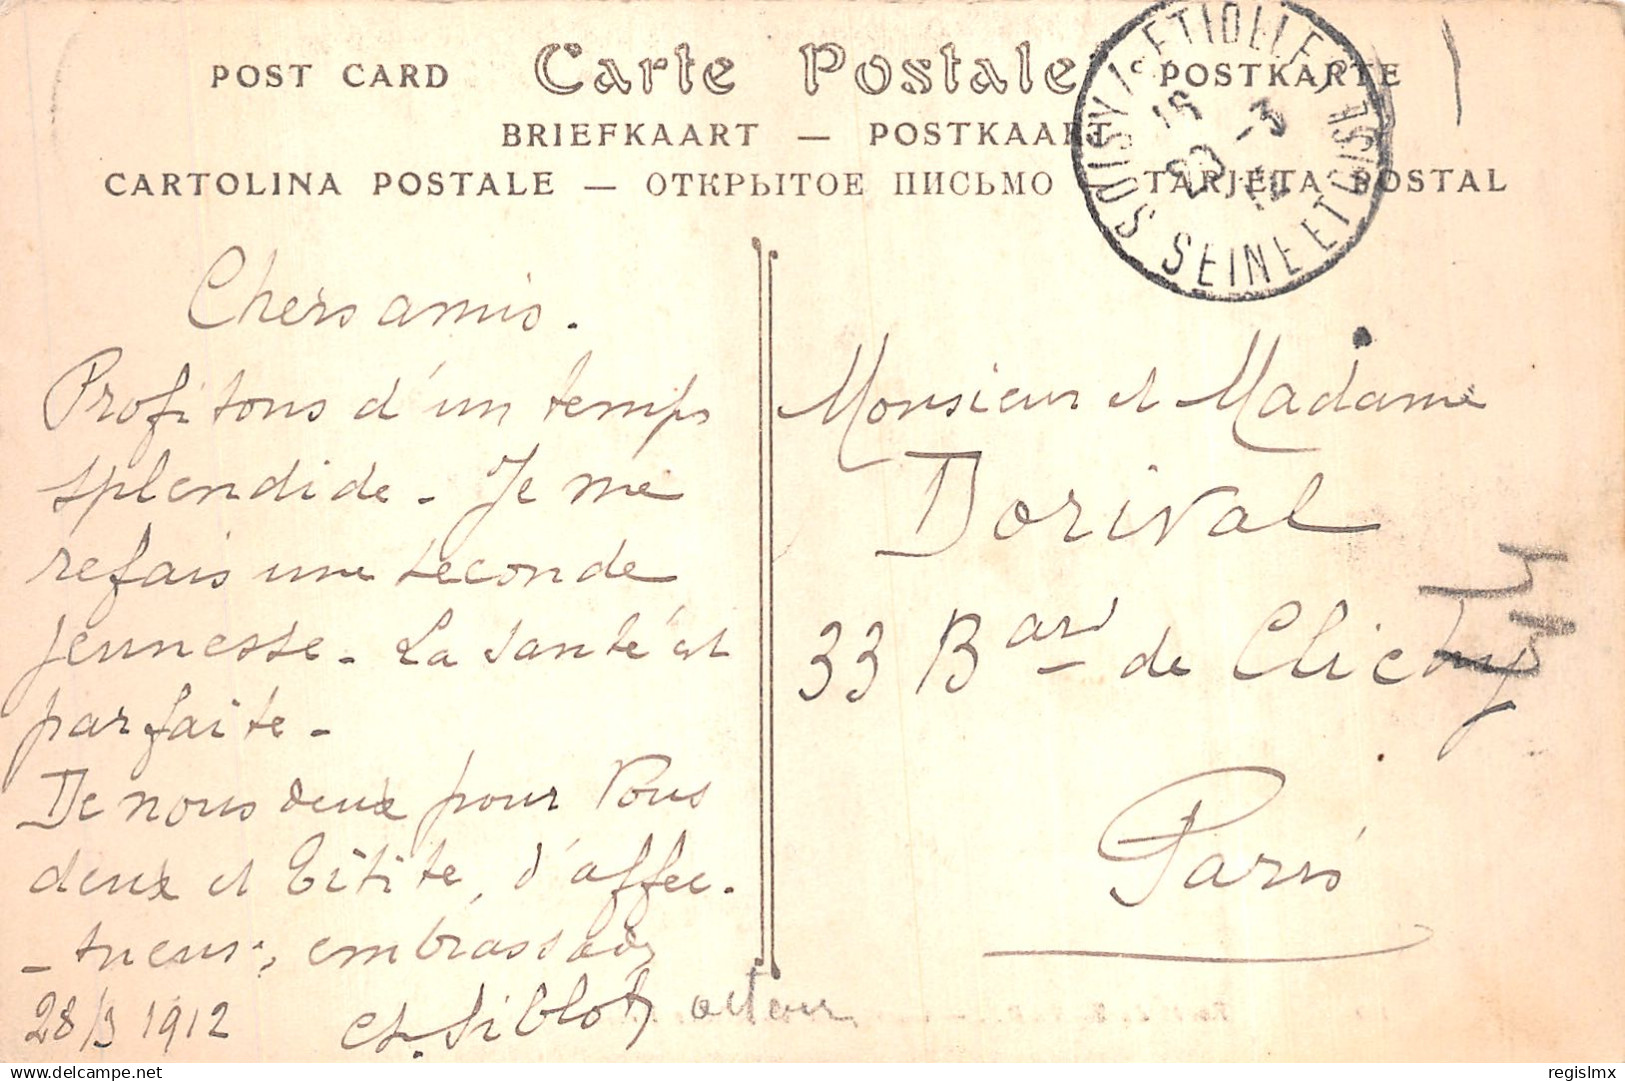 POST CARD Carte Postale POSTKARTE
BRIEFKAART — POSTKAART
CARTOLINA POSTALE — ОТКРЫТОЕ ПИСЬМО — TARJETA POSTAL
SOISY / S ETIOLLES
29 -3
12
SEINE ET OISE
Chers amis.
Profitons d'un temps
splendide - Je me
refais une seconde
jeunesse - La santé est
parfaite -
De nous deux pour Vous
deux et Titite, d'affec-
- tueux, embrassades
28/3 1912 Ch. Siblot acteur
Monsieur et Madame
Dorival
33 Bard de Clichy
Paris
regislmx